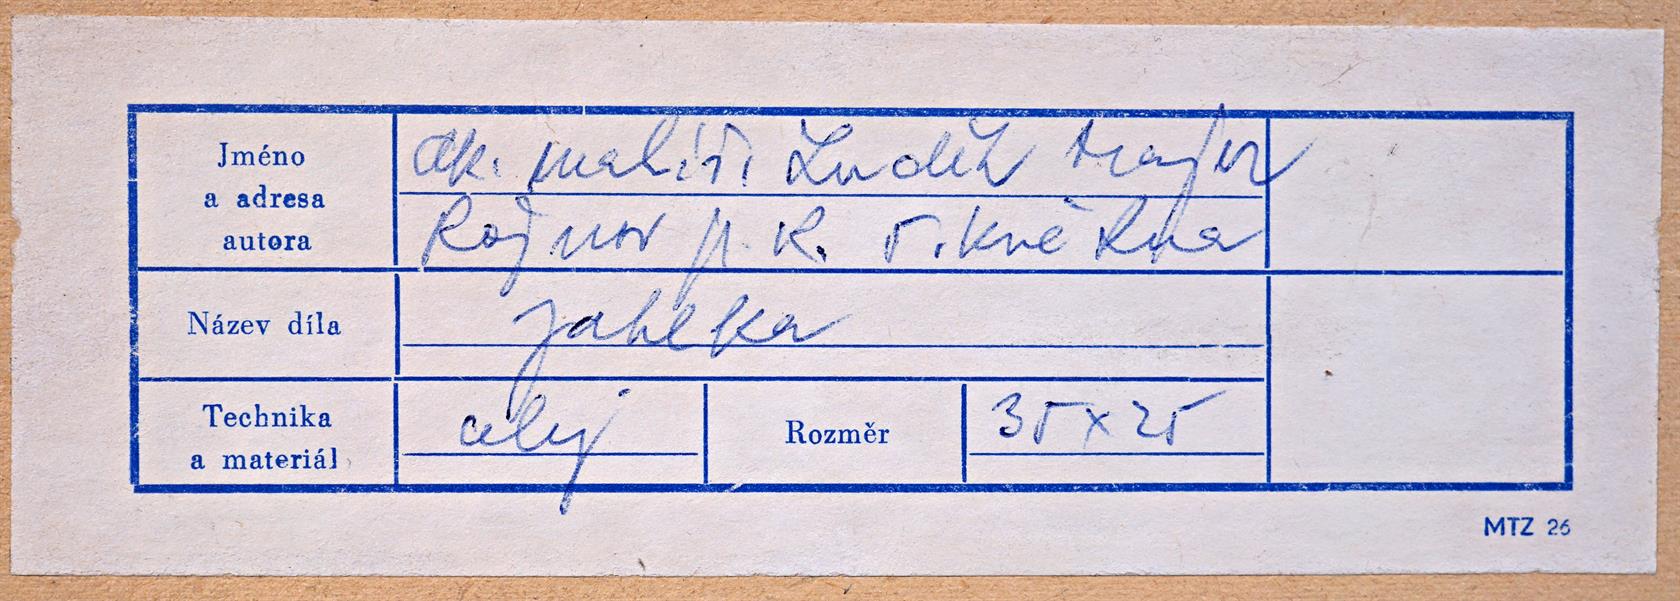 Jméno
a adresa
autora
ak. malíř. Luděk Majer
Rožnov p. R. 5. května
Název díla
Jablka
Technika
a materiál
olej
Rozměr
35 x 25
MTZ 26